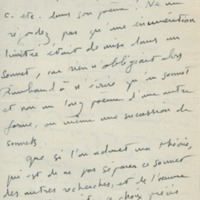 c. etc. dans son poème ! Ne me
répondez pas qu'une énumération
limitée était de mise dans un
sonnet, car rien n'obligeait alors
Rimbaud à n'écrire qu'un sonnet
et non un long poème d'une autre
forme, ou même une succession de
sonnets.
Que si l'on admet ma thèse,
qui est de ne pas séparer ce sonnet
des autres recherches, et de l'œuvre
choix